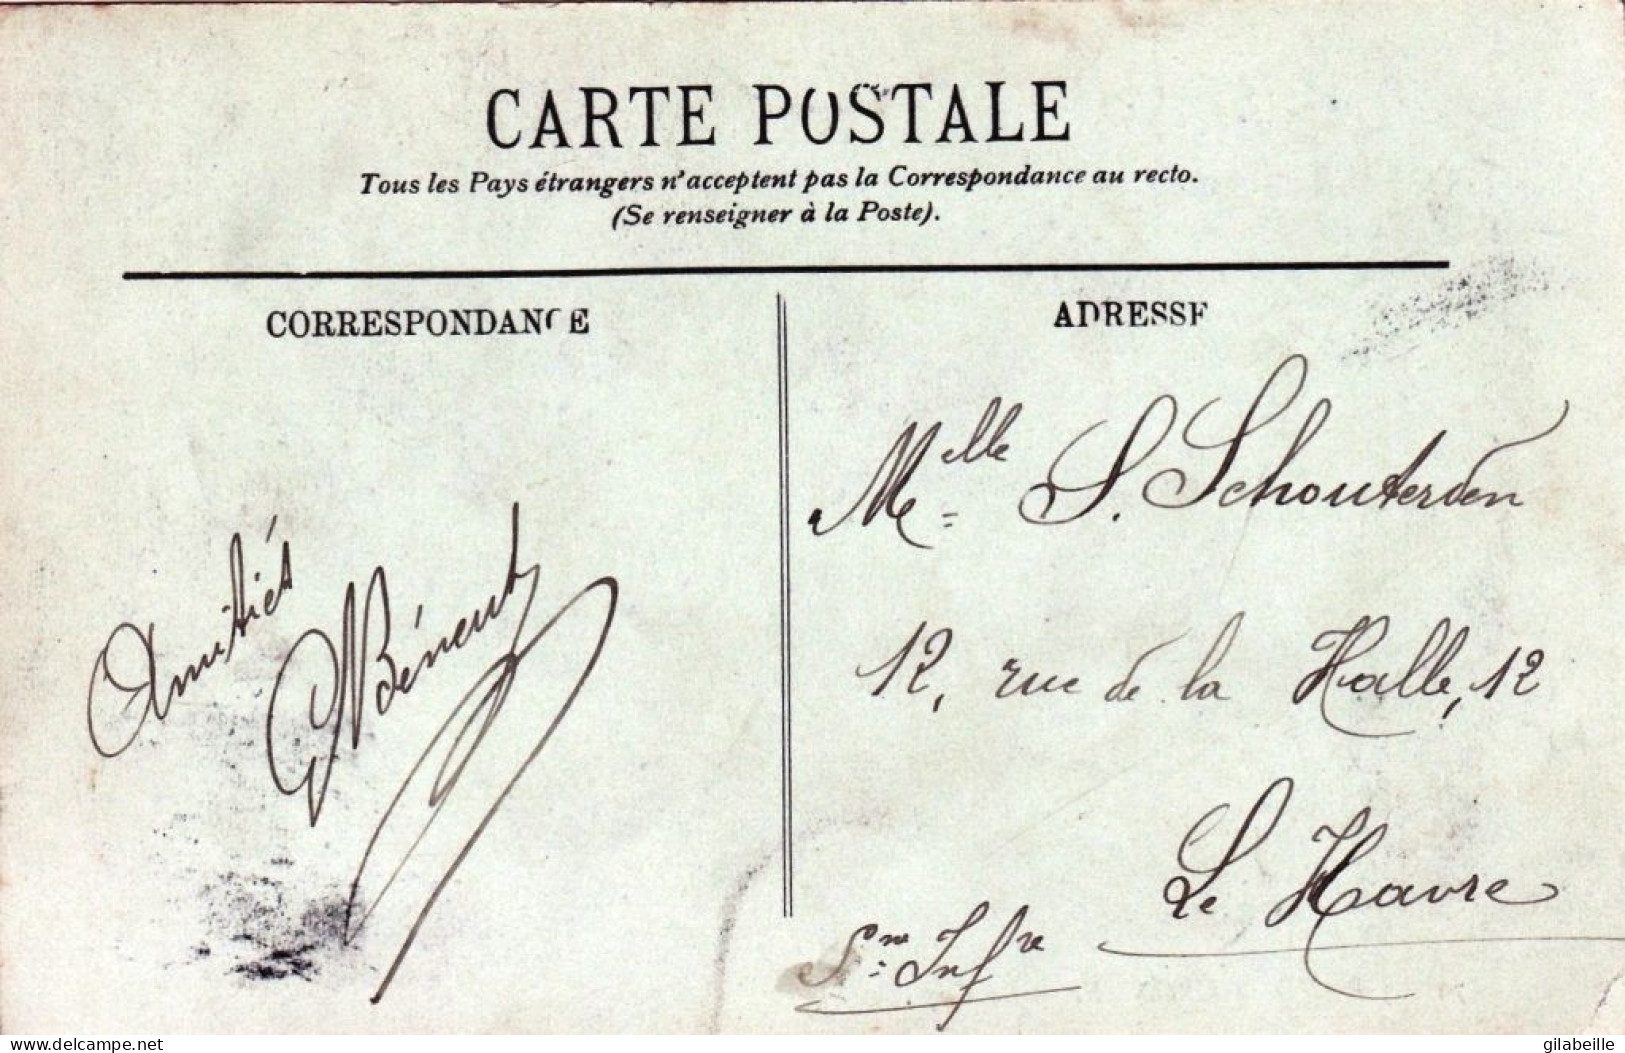 CARTE POSTALE
Tous les Pays étrangers n'acceptent pas la Correspondance au recto.
(Se renseigner à la Poste).
CORRESPONDANCE
ADRESSE
Amitiés
Melle S. Schouterden
12, rue de la Halle, 12
Le Havre
Sne Infre
delcampe.net
gilabeille